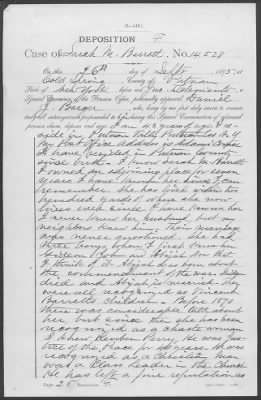 DEPOSITION F
Case of Sarah M. Barrett, No. 14,528
On this 26th day of Sept, 1895, at
Cold Spring, County of Putnam
State of New York, before me,
Special Examiner of the Pension Office, personally appeared Daniel
J. Barger, who, being by me first duly sworn to answer
truly all interrogatories propounded to him during this Special Examination of aforesaid
pension claim, deposes and says: I am 43 years of age.
Putnam Valley Putnam Co. N.Y.
My Post Office address is Adams Corners
I have resided in Putnam County
since birth. I know Sarah M. Barrett
I owned an adjoining place for seven
years. I have known her since I can
remember. She has lived within two
hundred yards of where she now
lives ever since I have known her
I never knew her husband, but my
neighbors knew him. Their marriage
was never questioned. She had
three boys whom I first knew
Gideon, Coleman and Abijah Nov that
I think it. Abijah was born about
the commencement of the war. Gideon
died and Abijah is married. They
were all recognized as Vincent
Barrett's children. Before 1870
there was considerable talk about
her, but since then she has been
recognized as a chaste woman
I knew Reuben Perry. He was
of the place for years. He was
recognized as a Christian man
was a Class Leader in the Church
He has left a fine reputation as
Page 25 Deposition F